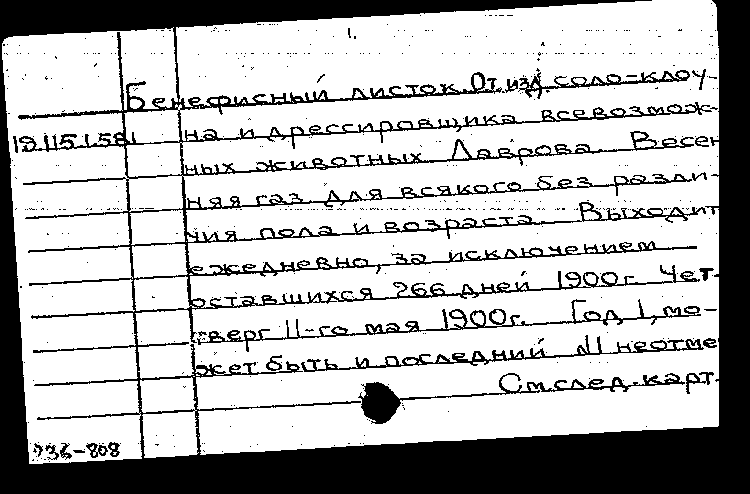 1.
Бенефисный листок. От изд. соло=клоу-
19.115.1.581 на и дрессировщика всевозмож-
ных животных Лаврова. Весен
няя газ. для всякого без разли-
чия пола и возраста. Выходит
ежедневно, за исключением
оставшихся 266 дней 1900г. Чет-
верг 11-го мая 1900г. Год 1, мо-
жет быть и последний №1 неотме
См.след.карт.
736-808